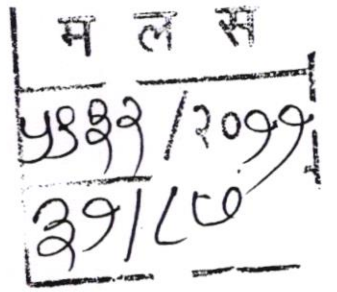 म ल स
५९३२/२०११
३१/८७